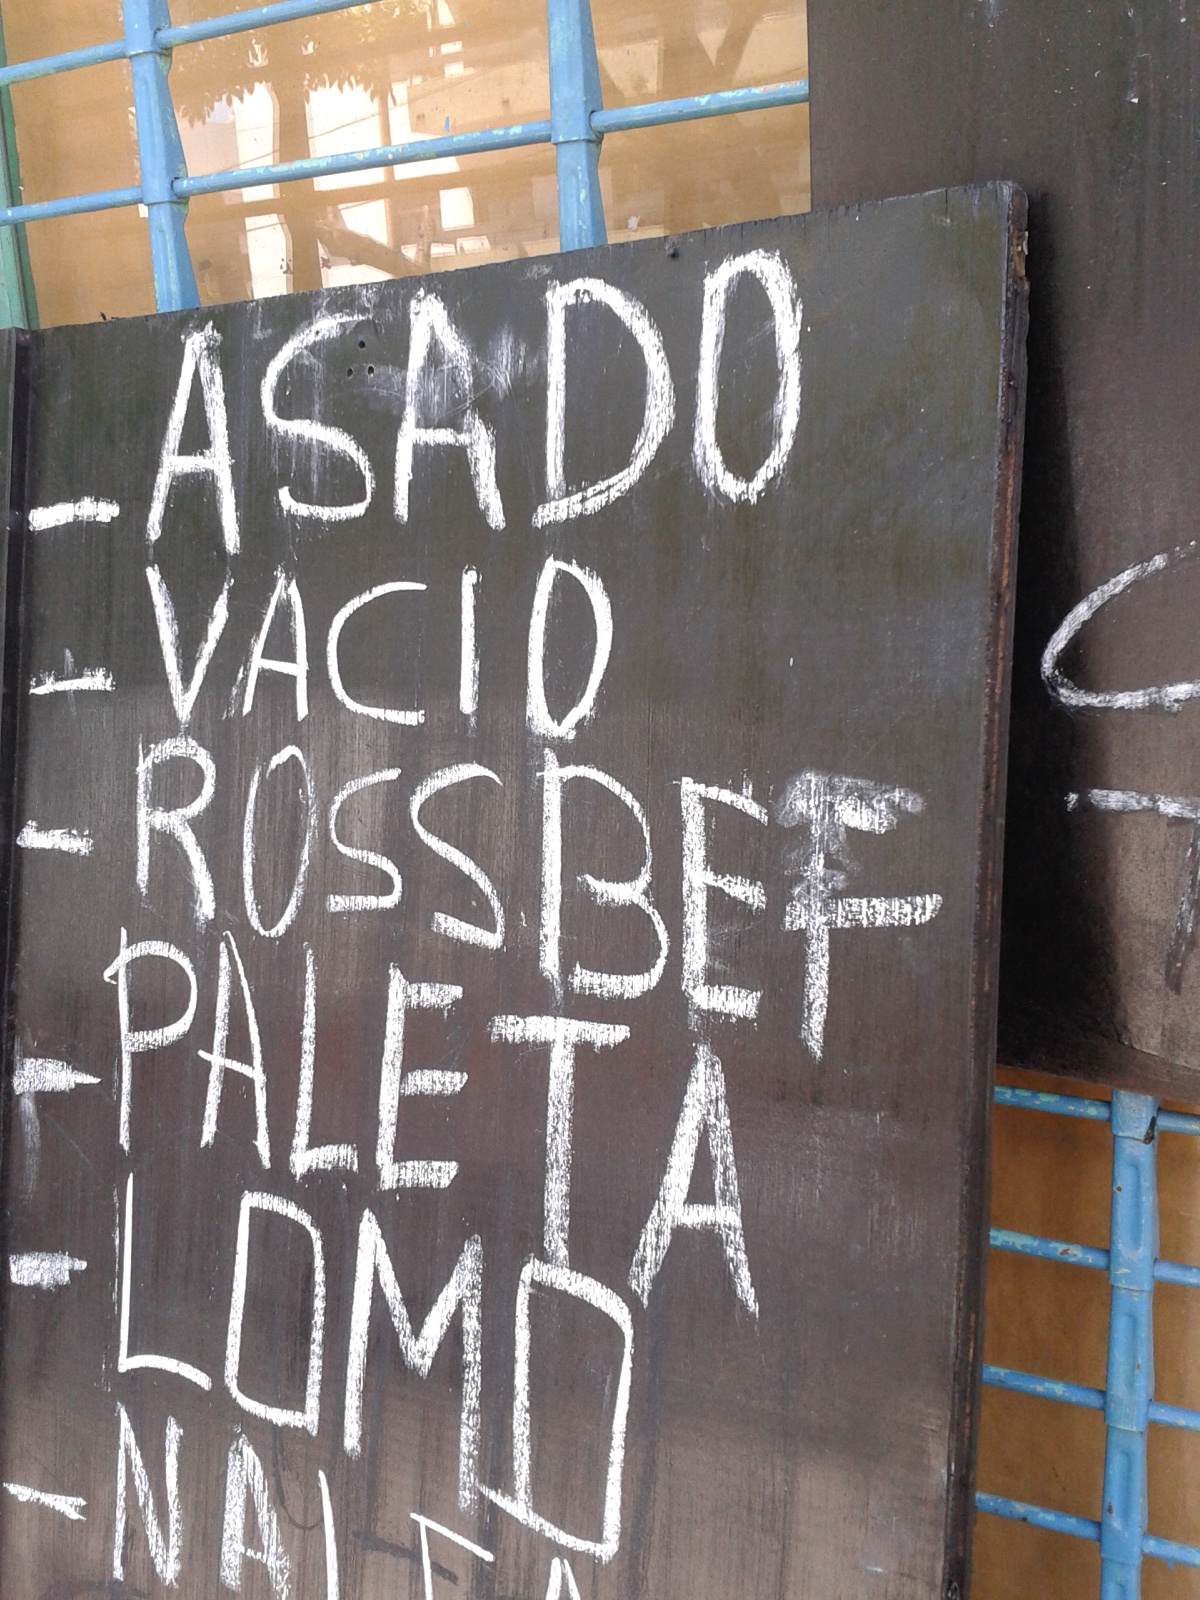 - ASADO
- VACIO
- ROSSBEF
- PALETA
- LOMO
- NALGA